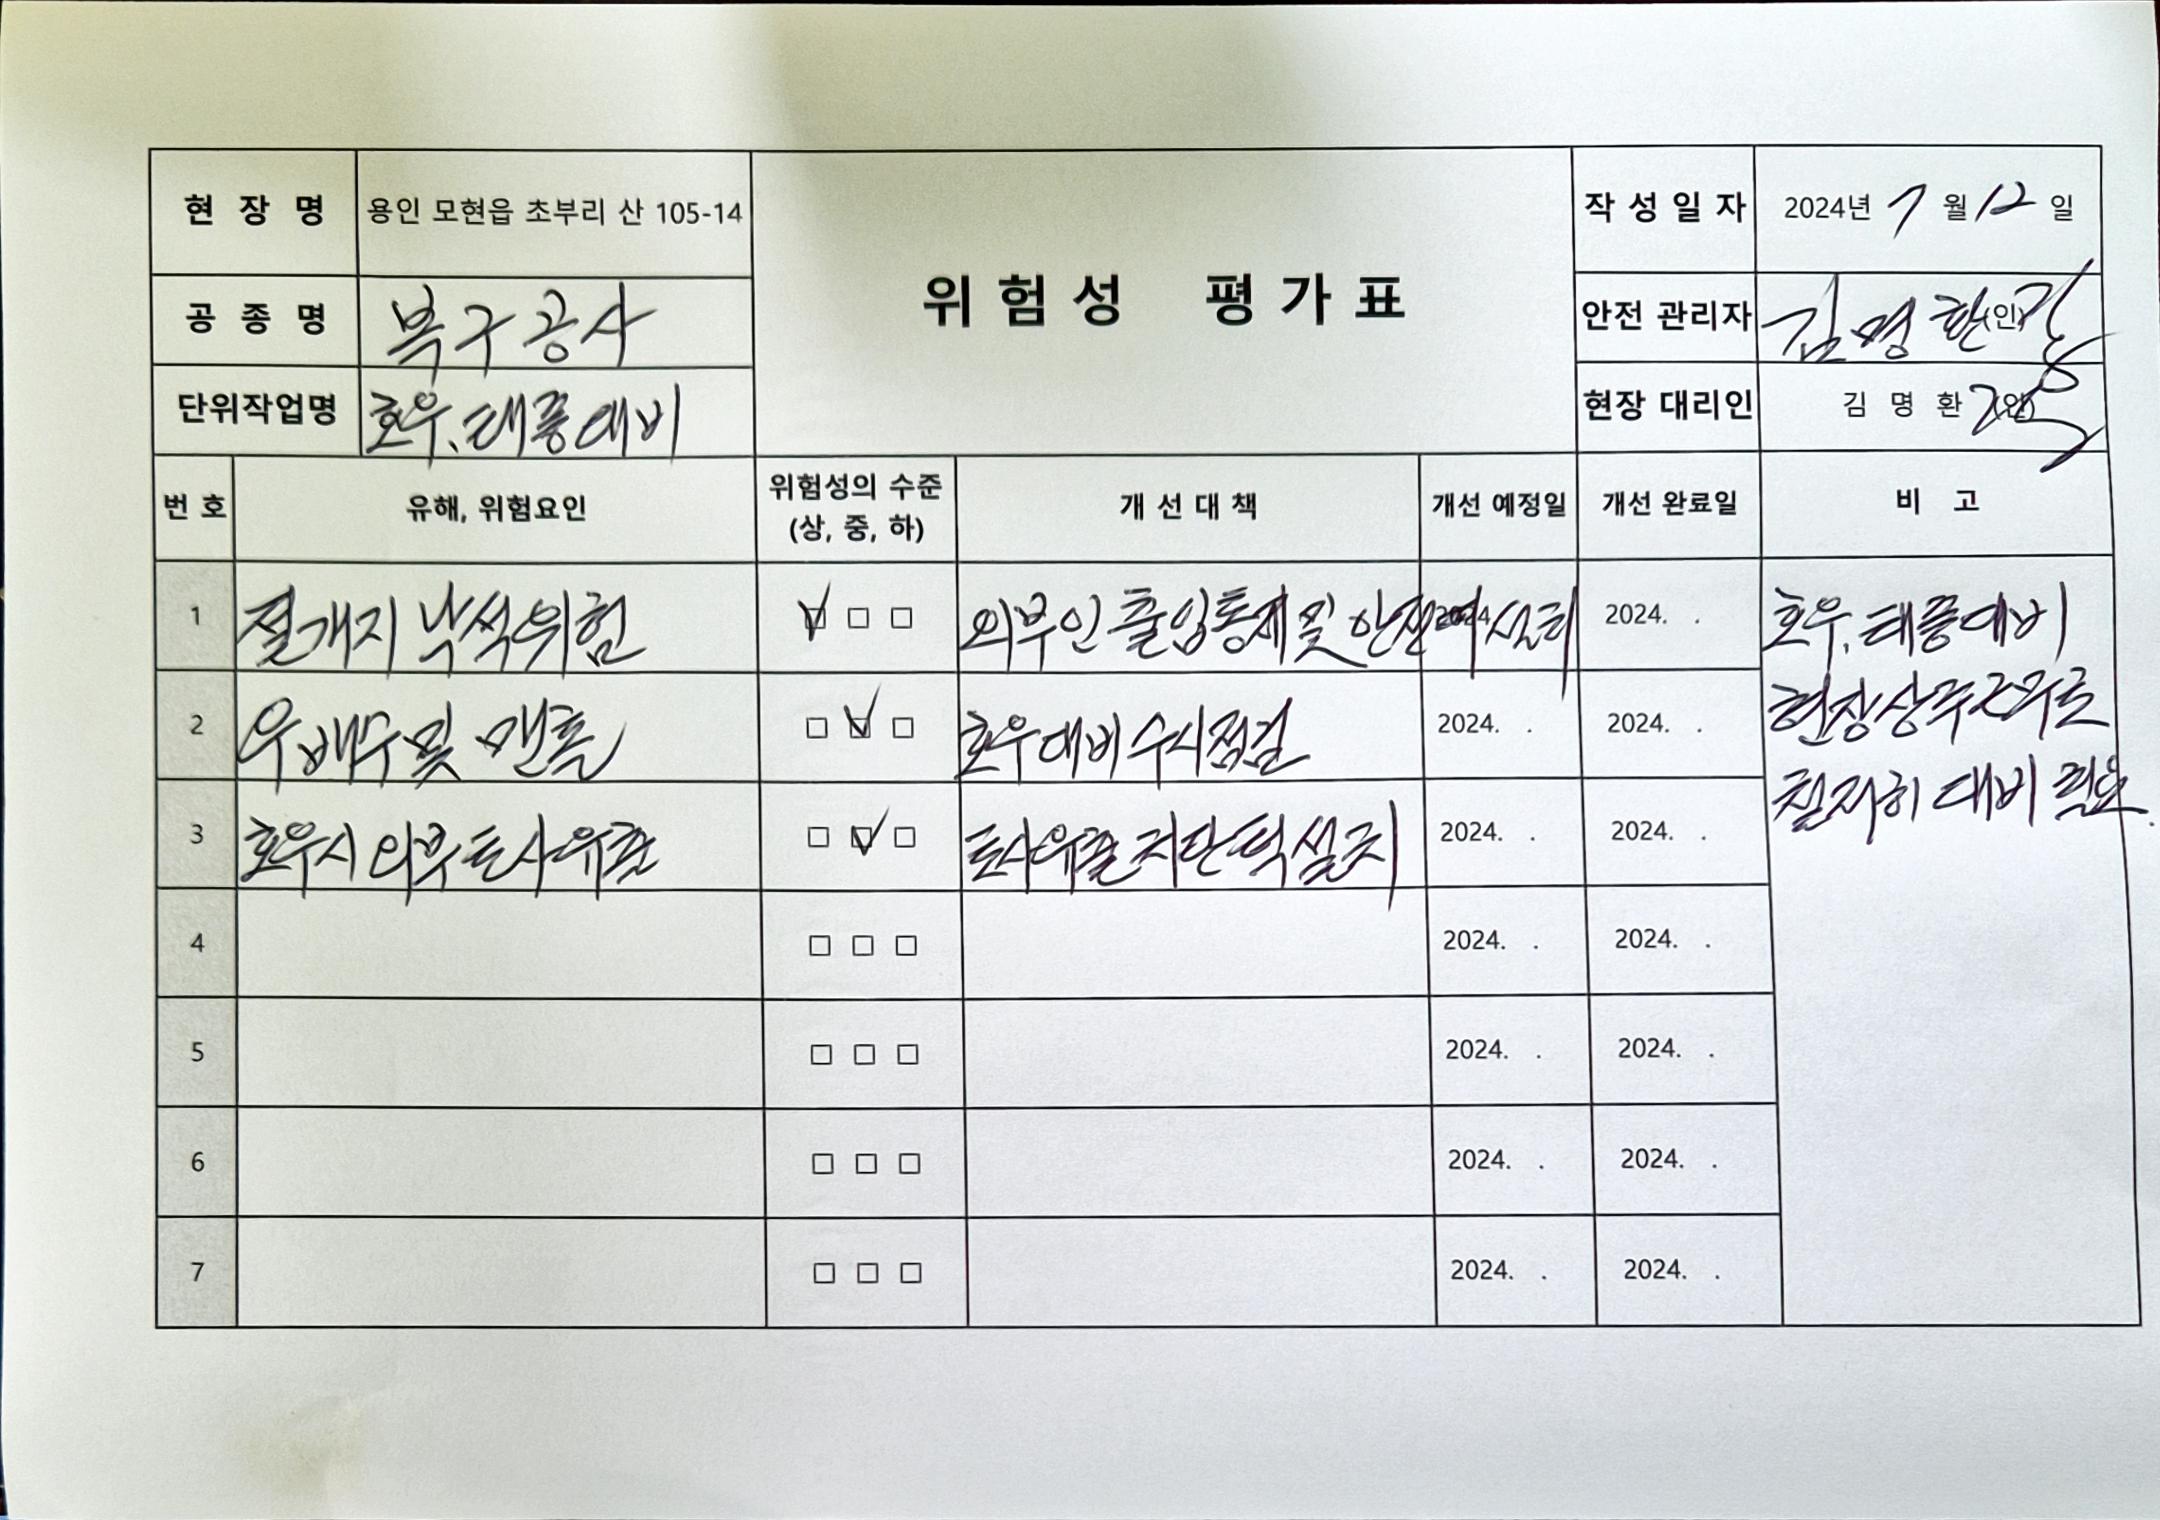 현 장 명 용인 모현읍 초부리 산 105-14
위 험 성 평 가 표
작 성 일 자 2024년 7월 12일
공 종 명 복구공사
안전 관리자 김명환 (인)
단위작업명 호우.태풍대비
현장 대리인 김 명 환 (인)
번 호 유해, 위험요인 위험성의 수준 (상, 중, 하) 개 선 대 책 개선 예정일 개선 완료일 비 고
1 절개지 낙석위험 ☑ □ □ 외부인 출입통제 및 안전 2024. .
호우.태풍대비
현장상주근무로
철저히 대비 필요.
2 우배수 및 맨홀 □ ☑ □ 호우대비 수시점검 2024. . 2024. .
3 호우시 외부토사유출 □ ☑ □ 토사유출 설치 2024. . 2024. .
4 □ □ □ 2024. . 2024. .
5 □ □ □ 2024. . 2024. .
6 □ □ □ 2024. . 2024. .
7 □ □ □ 2024. . 2024. .